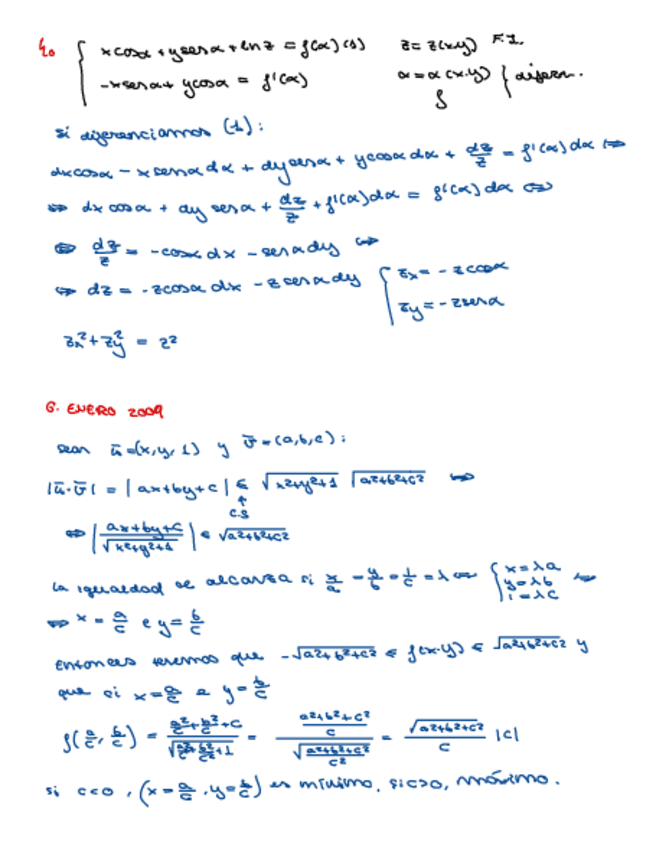 4. { x cosα + y senα + ln z = f(α) (1)   z = z(x,y) F.I.
-x senα + y cosα = f'(α)   α = α(x,y) } diferen.
f
si diferenciamos (1):
dx cosα - x senα dα + dy senα + y cosα dα + dz/z = f'(α) dα ⇔
⇔ dx cosα + dy senα + dz/z + f'(α)dα = f'(α) dα ⇔
⇔ dz/z = -cosα dx - senα dy ⇔
⇔ dz = -z cosα dx - z senα dy { zx = -z cosα
zy = -z senα
zx² + zy² = z²
6. ENERO 2009
sean ū=(x,y,1) y v̄=(a,b,c):
|ū·v̄| = |ax+by+c| ≤ √(x²+y²+1) √(a²+b²+c²) ⇔
↑
C.S
⇔ |(ax+by+c)/√(x²+y²+1)| ≤ √(a²+b²+c²)
La igualdad se alcanza si x/a = y/b = 1/c = λ ⇔ { x=λa y=λb 1=λc ⇔
⇔ x = a/c e y = b/c
Entonces tenemos que -√(a²+b²+c²) ≤ f(x,y) ≤ √(a²+b²+c²) y
que si x = a/c e y = b/c
f(a/c, b/c) = (a²/c + b²/c + c)/√(a²/c² + b²/c² + 1) = ((a²+b²+c²)/c)/√((a²+b²+c²)/c²) = √(a²+b²+c²)/c |c|
si c<0, (x = a/c, y = b/c) es mínimo. si c>0, máximo.